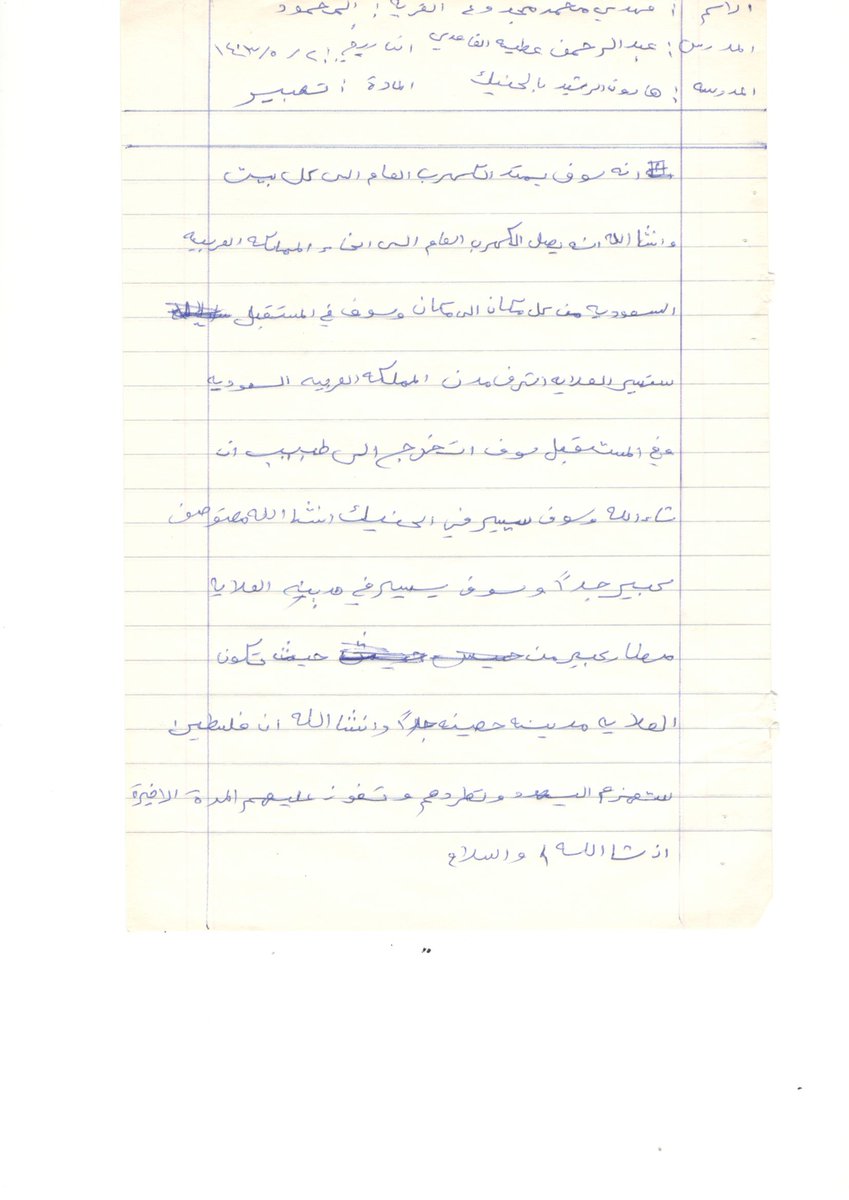 الاسم : مهدي محمد مجدوع القرية : المحمود
المدرس : عبد الرحمن عطيه الغامدي التاريخ : ٢١ / ٥ / ١٤٠٣
المدرسه : هارون الرشيد بالحنيك المادة : تعبير
انه سوف يمتد الكهرب العام الى كل بيت
وانشا الله انه يصل الكهرب العام الى انحاء المملكة العربيه
السعوديه من كل مكان الى مكان وسوف في المستقبل
ستصير العلايه اشرف مدن المملكه العربيه السعوديه
وفي المستقبل سوف اتخرج الى طبيب ان
شاء الله وسوف يسير في الحنيك انشا الله مستوصف
كبير جداً وسوف يسير في مدينه العلايه
مطار كبير من حيث تكون
العلايه مدينه حصينه جداً وانشا الله ان فلسطين
ستهزم اليهود وتطردهم وتفوز عليهم المدة الاخيرة
انشا الله / والسلام